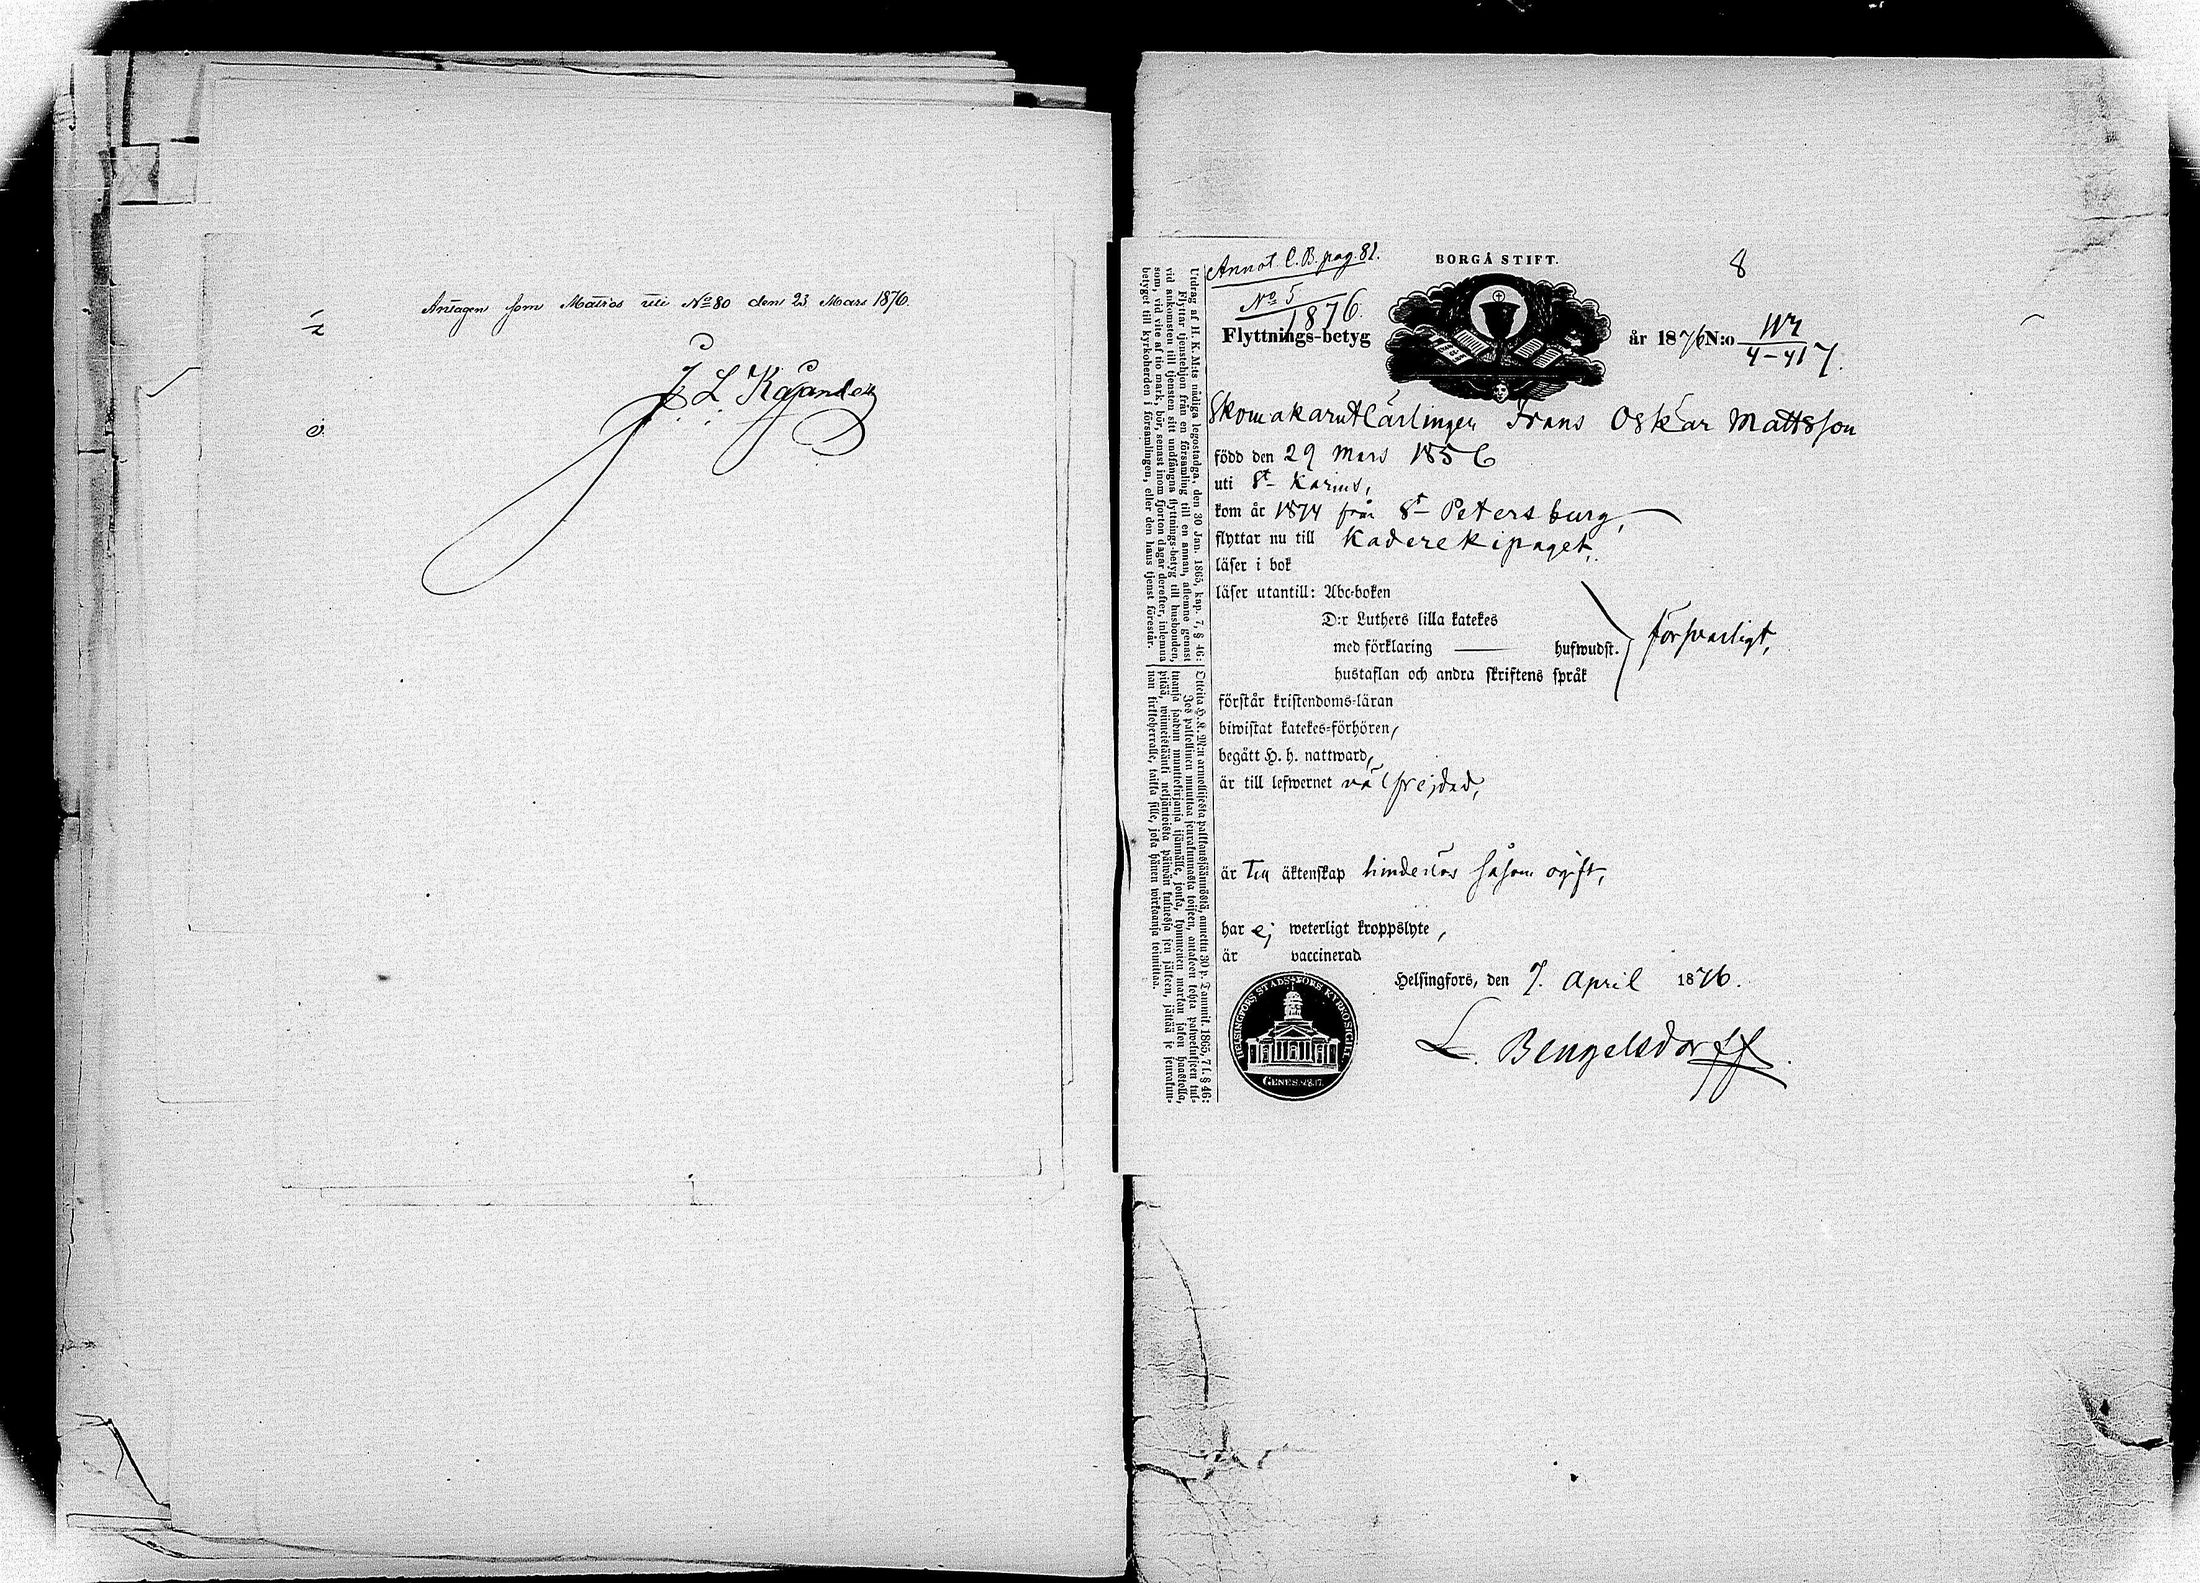 Antagen som Matros uti No 80 den 23 Mars 1876.
J. L. Kajander
Annot. C. B. pag. 82.
No 5
1876.
BORGÅ STIFT.
8
Flyttnings-betyg
år 1876 N:o
Skomakarelärlingen Frans Oskar Mattsson
född den 29 Mars 1856
uti St Karins,
kom år 1874 från St Petersburg,
flyttar nu till Kaderekipaget,
läser i bok
läser utantill: Abc-boken
D:r Luthers lilla katekes
med förklaring hufwudst.
försvarligt,
hustaflan och andra skriftens språk
förstår kristendoms-läran
biwistat katekes-förhören,
begått H. h. nattward,
är till lefwernet välfrejdad,
är till äktenskap hinderlös såsom ogift,
har ej weterligt kroppslyte,
är vaccinerad
Helsingfors, den 7. April 1876.
L. Bengelsdorff.
HELSINGFORS STADSFÖRS. KYRKOSIGILL
GENES. 28. 17.
Utdrag af H. K. M:ts nådiga legostadga, den 30 Jan. 1865, kap. 7, § 46:
Flyttar tjenstehjon från en församling till en annan, aflemne genast
vid ankomsten till tjensten sitt undfångna flyttnings-betyg till husbonden,
som, vid vite af tio mark, bör, sennast inom fjorton dagar derefter, inlemna
betyget till kyrkoherden i församlingen, eller den hans tjenst förestår.
Otteita H. K. M:n armollisesta palkkaussäännöstä, annettu 30 p. Tammik. 1865, 7 l. § 46:
Jos palkollinen muuttaa seurakunnasta toiseen, antakoon kohta palwelukseen tul-
tuansa saadun muuttokirjansa isännälle, jonka, kymmenen markan sakon haastolla,
pitää, wiimeistäänki neljäntoista päiwän kuluessa sen jälkeen, jättää se seurakun-
nan kirkkoherralle, taikka sille, joka hänen wirkaansa toimittaa.